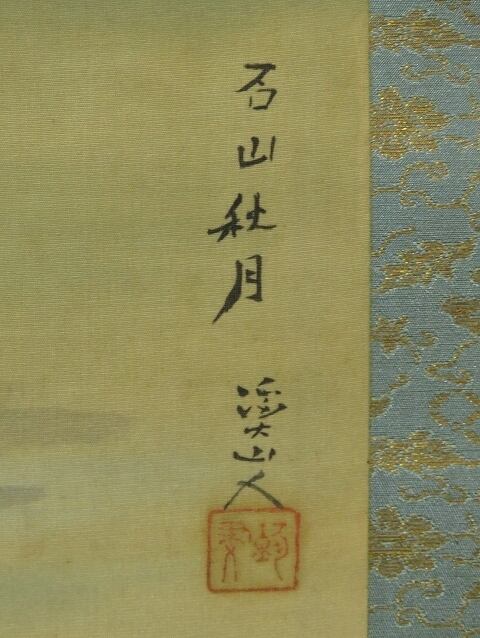 石山秋月
溪山人